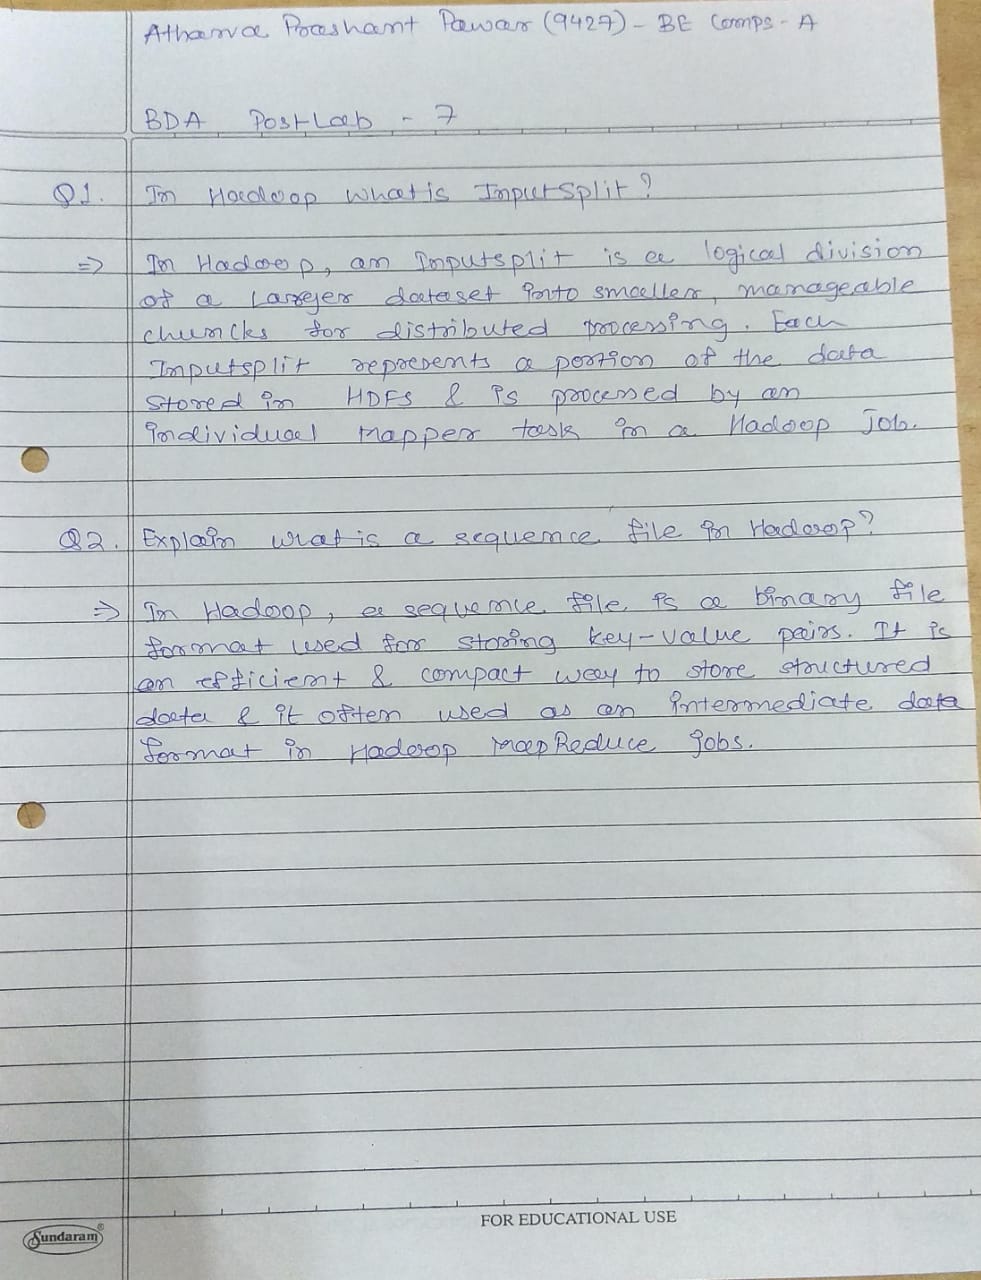 Atharva Prashant Pawar (9427) - BE Comps - A
BDA PostLab - 7
Q1. In Hadoop what is InputSplit?
⇒ In Hadoop, an Inputsplit is a logical division
of a larger dataset into smaller, manageable
chuncks for distributed processing. Each
Inputsplit represents a portion of the data
stored in HDFS & is processed by an
individual Mapper task in a Hadoop Job.
Q2. Explain what is a sequence file in Hadoop?
⇒ In Hadoop, a sequence file is a binary file
format used for storing key-value pairs. It is
an efficient & compact way to store structured
data & it often used as an intermediate data
format in Hadoop MapReduce jobs.
FOR EDUCATIONAL USE
Sundaram®